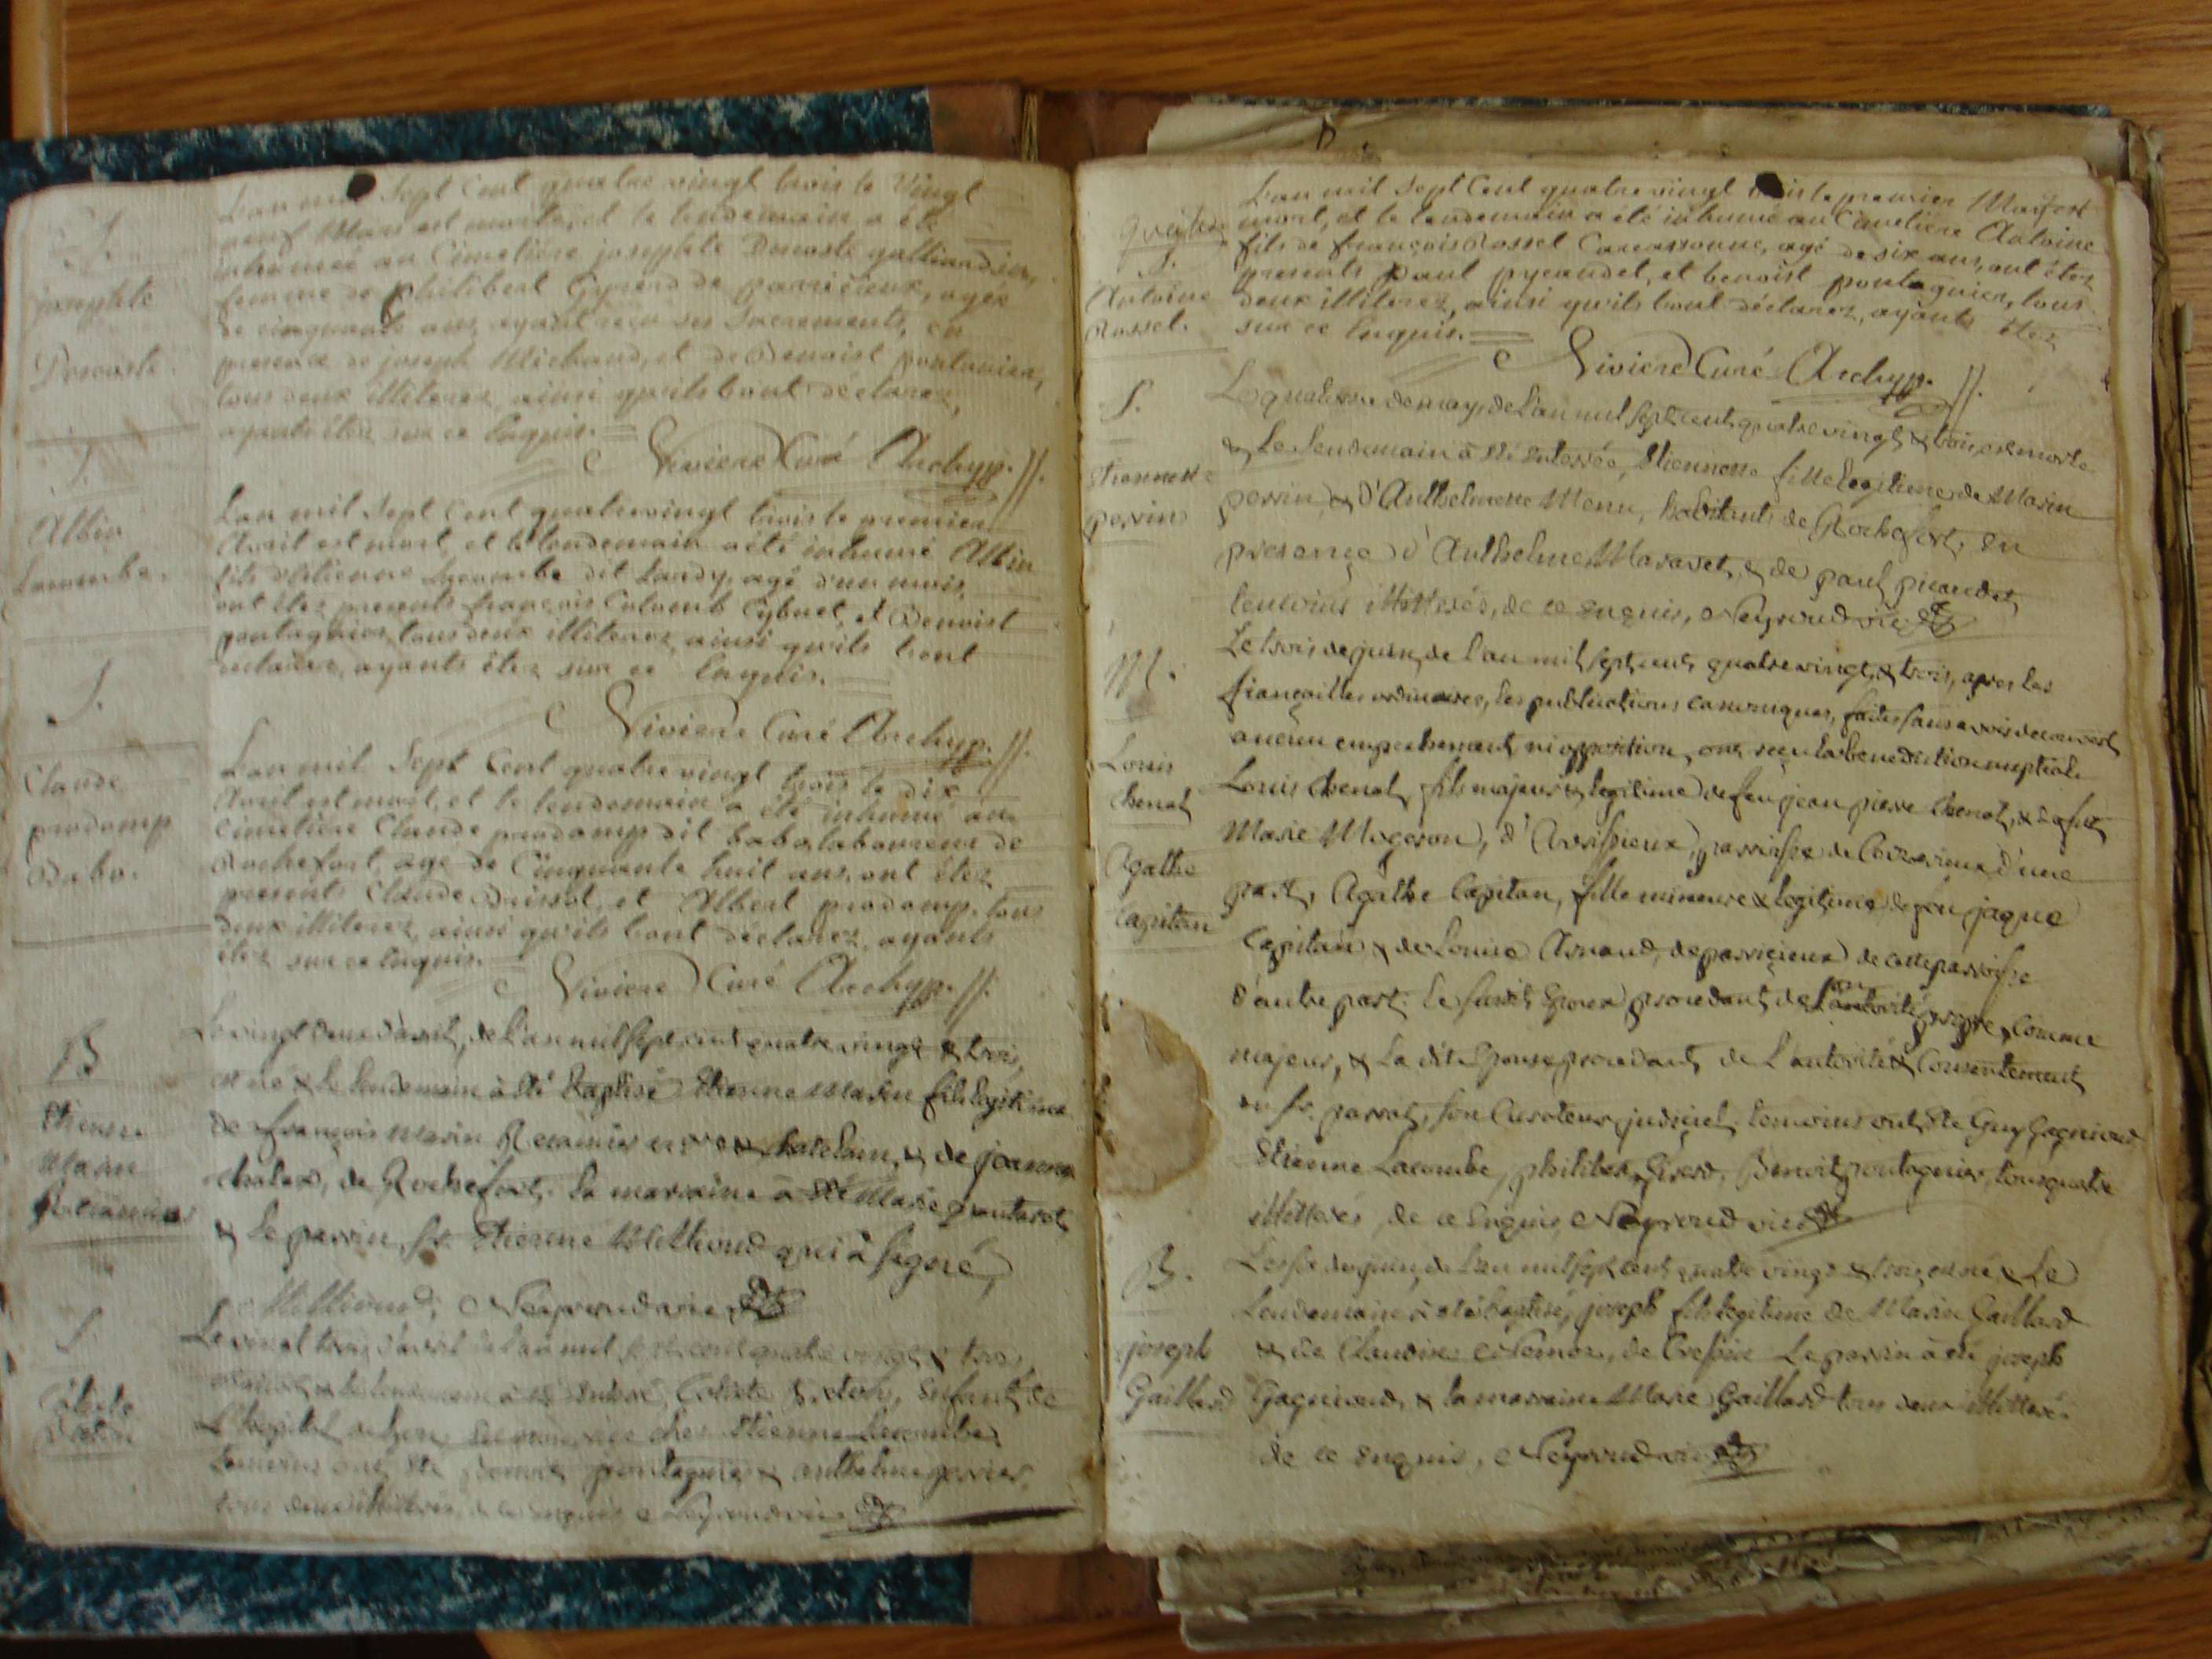 S.
josephte
Donoste.
L'an mil Sept Cent quatre vingt trois le Vingt
neuf Mars est morte, et le lendemain a été
inhumée au Cimetiere josephte Donoste
femme de philibert Gyrerd de parricieux, agée
de cinquante ans, ayant reçu ses Sacrements, en
presence de joseph Michaud, et de Benoist
tous deux illiterez, ainsi qu'ils l'ont déclarez,
ayants étez sur ce Enquis.
Viviend Curé Archyp.
S.
Albin
Lacombe.
L'an mil Sept Cent quatre vingt trois le premier
Avril est mort, et le lendemain a été inhumé Albin
fils d'Etienne Lacombe dit Landy, agé d'un mois,
ont étez presents françois Colomb Cybuet, et Benoist
pontagnier, tous deux illiterez, ainsi qu'ils l'ont
declarez, ayants étez sur ce Enquis.
Viviend Curé Archyp.
S.
Claude
prodomp
Babo.
L'an mil Sept Cent quatre vingt trois le dix
Avril est mort, et le lendemain a été inhumé au
Cimetiere Claude prodomp dit babo, laboureur de
Rochefort, agé de Cinquante huit ans, ont étez
presents Claude Brissot, et Albert prodomp, tous
deux illiterez, ainsi qu'ils l'ont déclarez, ayants
étez sur ce Enquis.
Viviend Curé Archyp.
B
Etienne
Marin
Recamier
Le vingt deux d'avril, de l'an mil sept cent quatre vingt & trois,
est né & le lendemain à été baptisé Etienne Marin fils legitime
de françois Marin Recamier & chatelain, & de jeanne
chalex, de Rochefort. la marraine à été Marie
& le parrin, sr. Etienne Milliond qui à signé,
Milliond, Neyroud vic
S.
Le vingt trois d'avril de l'an mil sept cent quatre vingt & trois,
est mort & le lendemain à été enterré, enfant de
L'hopital de chez Etienne Lacombe,
temoins ont été Benoit pontagnier & anthelme perrier
tous deux illitterés, de ce enquis Neyroud vic
S.
Antoine
Rosset.
L'an mil Sept Cent quatre vingt trois le premier May est
mort, et le lendemain a été inhumé au Cimetiere Antoine
fils de françois Rosset Carcassonne, agé de six ans, ont étez
presents paul pycaudet, et benoist pontagnier, tous
deux illiterez, ainsi qu'ils l'ont déclarez, ayants étez
sur ce Enquis.
Viviend Curé Archyp.
S.
Etiennette
perrin
Le quatrieme de may, de l'an mil sept cent quatre vingt & trois, est morte
& le lendemain à été enterrée, Etiennette fille legitime de Marin
perrin, & d'Anthelmette Menu, habitants de Rochefort, en
presence d'Anthelme Maravet, & de paul picaudet,
temoins illitterés, de ce enquis, Neyroud vic
M.
Louis
Chenat
Agathe
Capitan
Le trois de juin, de l'an mil sept cent quatre vingt & trois, apres les
fiançailles ordinaires, les publications canoniques, faites sans avoir decouvert
aucun empechement ni opposition, ont reçu la benediction nuptiale
Louis Chenat, fils majeur & legitime de feu jean pierre Chenat, & de fut
Marie Mogeron, d'Arcissieux, parroisse de d'une
part, Agathe Capitan, fille mineure & legitime de feu jaque
Capitan & de Louise Arnaud, de parricieux de cette parroisse
d'autre part. le susdit Epoux procedant de son autorité propre, comme
majeur, & la dite Epouse procedant de l'autorité & Consentement
du sr. parrat, son Curateur judiciel, temoins ont été Guy Gagniond
Etienne Lacombe, philibert Girerd, Benoit pontagnier, tous quatre
illitterés de ce Enquis, Neyroud vic
B.
joseph
Gaillard
Le six de juin, de l'an mil sept cent quatre vingt & trois, est né, & le
lendemain à été baptisé, joseph fils legitime de Marin Gaillard
& de Claudine, de Cressieu Le parrin à été joseph
Gagniond, & la marraine Marie Gaillard tous deux illitterés
de ce enquis, Neyroud vic